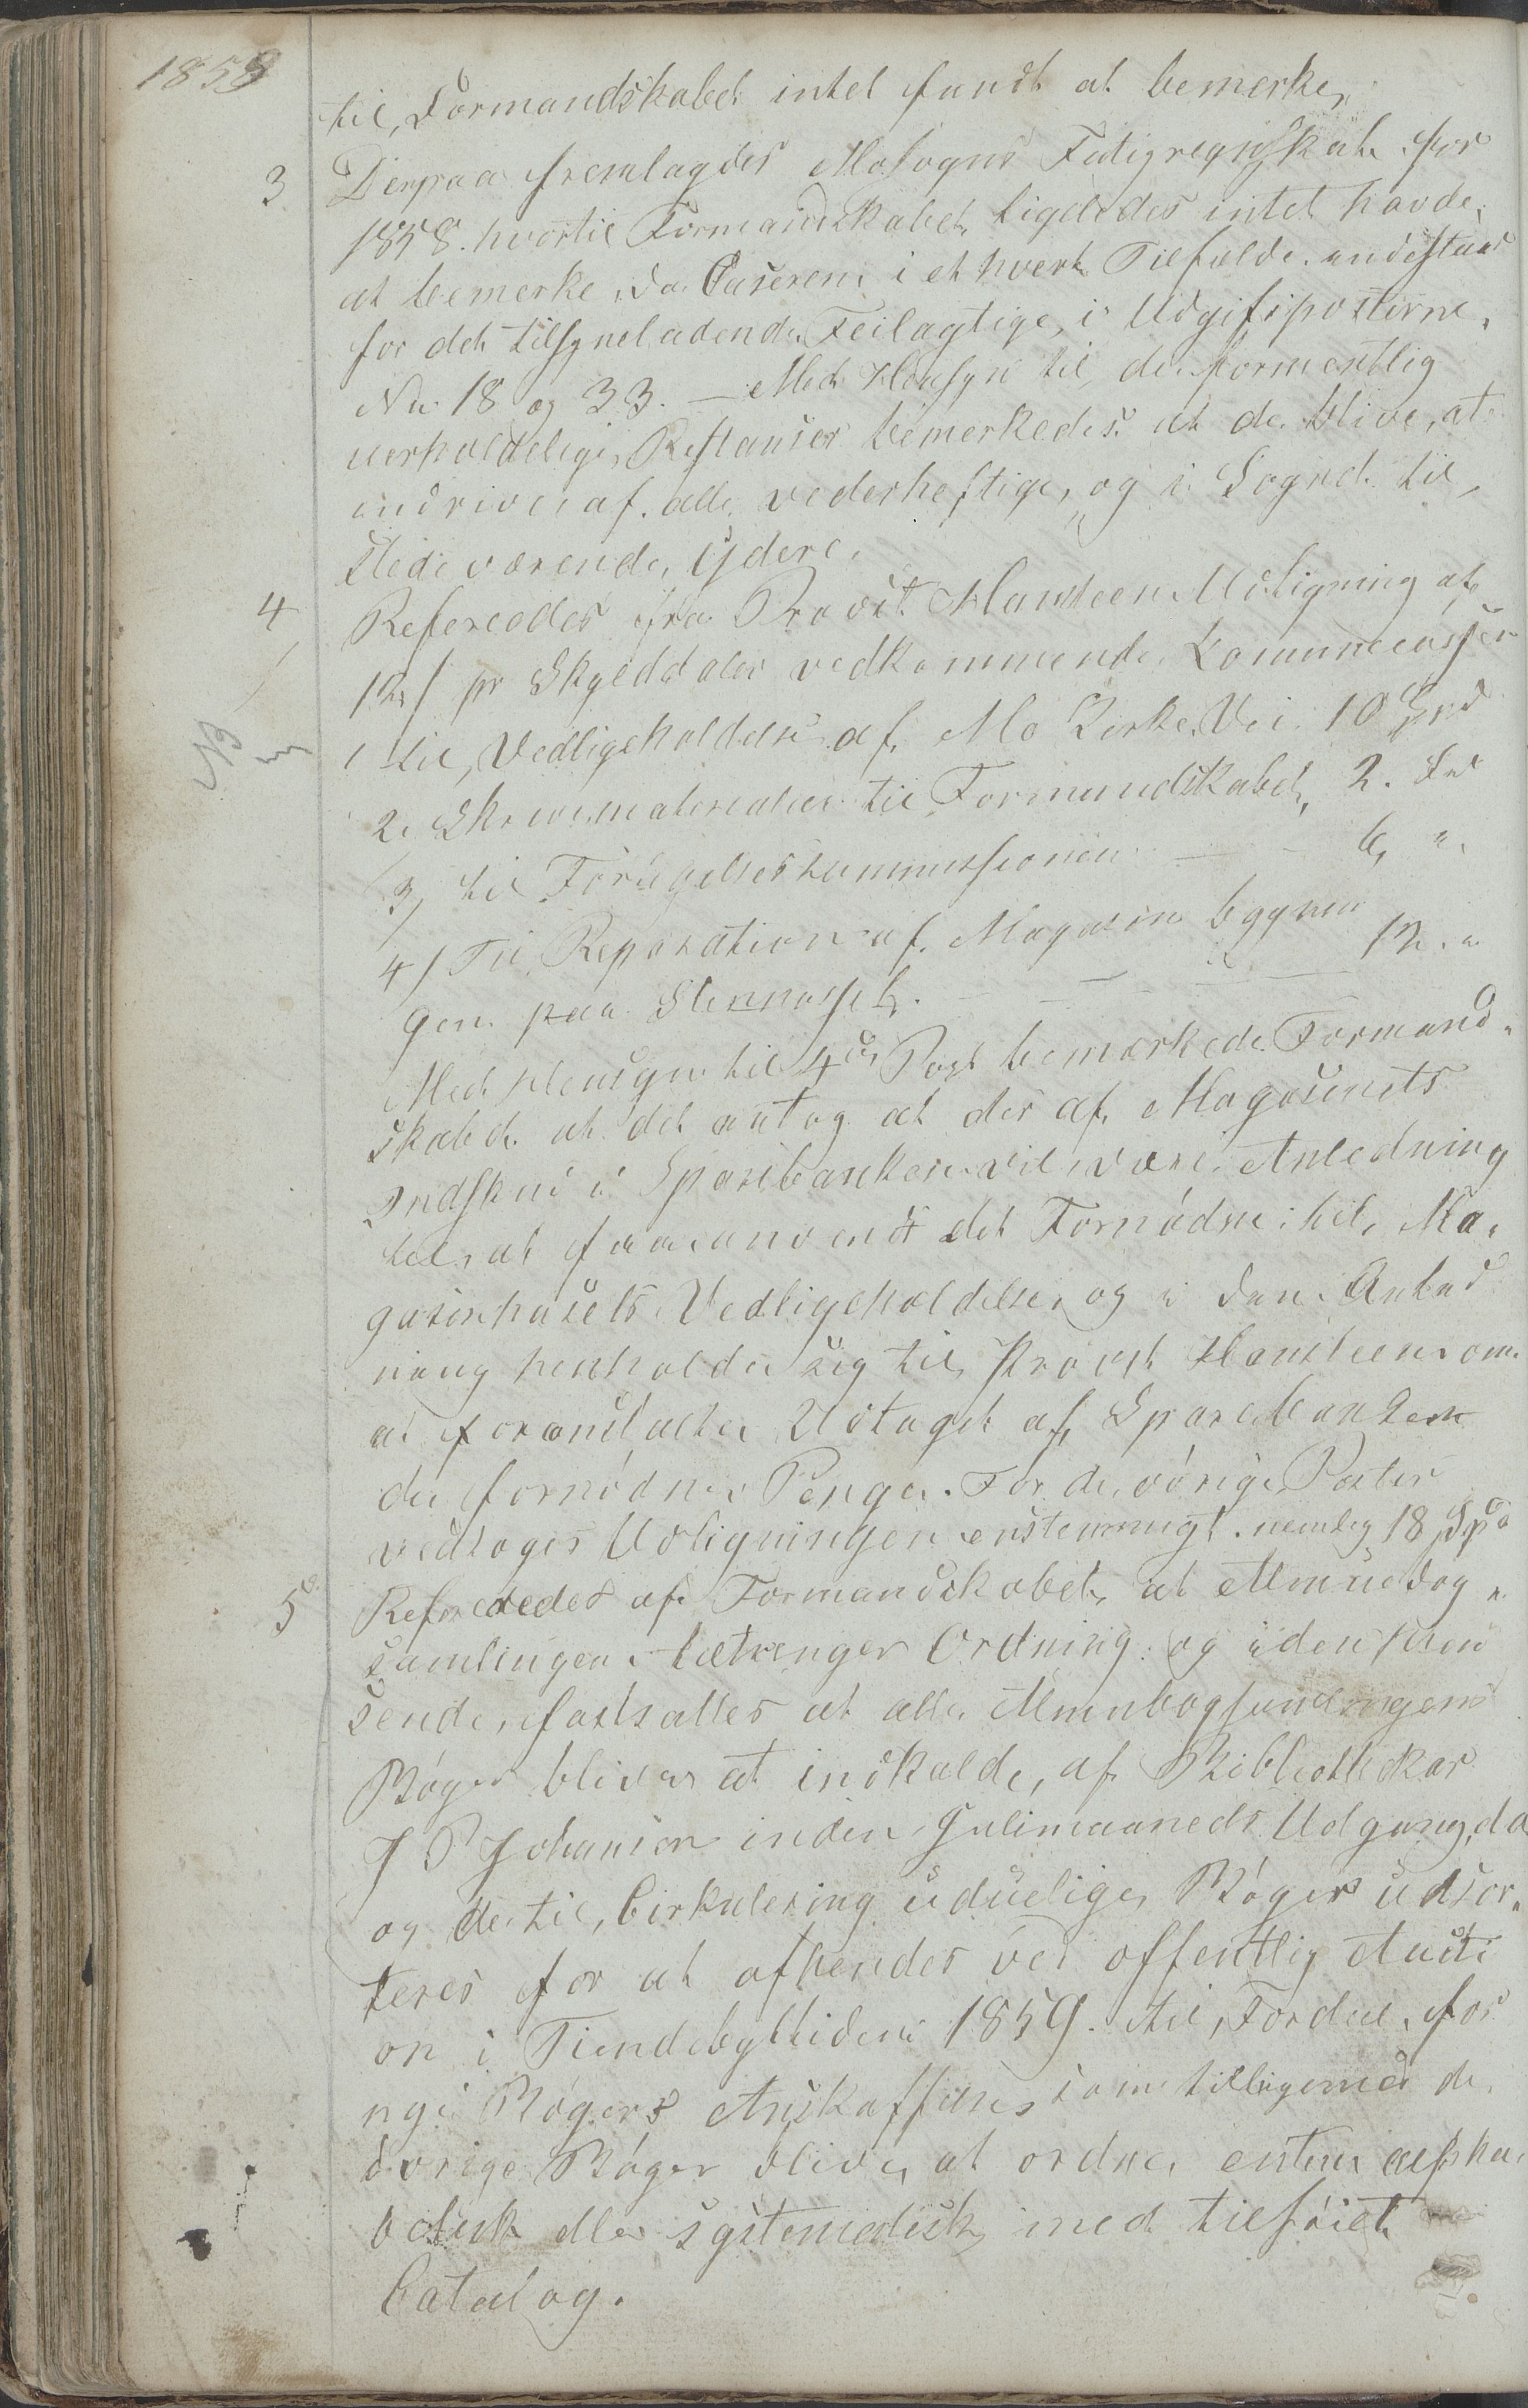 1858
til, Formandskabet intet fandt at bemerke,
3 Derpaa fremlagdes Mo Sogns Fatigregnskab for
1858. hvortil Formandskabet ligeledes intet havde
at bemerke, da Caseren i ethvert Tilfælde indestaar
for det tilsyneladende Feilagtige, i Udgiftsposterne,
No 18 og 33. – Med Hensyn til de formentlig
uerholdelige Restanser bemerkedes at de blive, at
inddrive af alle vederheftige, og i Sognet til
stede værende, Ydere.
4 Refereredes fra Provst Hansteen Udligning af
12 / pr Skylddaler vedkommende Kommunecassen
1 til, Vedligeholdelse af Mo Kirke Vei 10 Spd
NB
2, Skrivematerialier til Formandskabet, 2. Spd
3, til Forligelseskommissionen — - 6, "
4/ Til Reparation af Magasin bygnin
gen paa Stennæsset. — — — 12. "
Med Hensyn til 4de Post bemærkede Formand-
skabet at det antog at der af Magasinets
Indskud i Sparebanken vil være Anledning
til, at faa anvendt det Fornødne til Ma-
gasinhusets Vedligeholdelse, og i den Anled
ning henholder sig til, Provst Hansteen om
at foranstalte Udtaget af, Sparebanken
de fornødne Penge. For de øvrige Poster
vedtoges Udligningen enstemmigt. nemlig 18 Spd
5 Refereredes af Formandskabet, at Almuebog-
samlingen tiltrenger Ordning: og i den Hen
seende, fastsattes at alle Almuebogsamlingens
Bøger bliver at indkalde, af Bibliothekar
J P Johansen inden Julimaaneds Udgang, da
og de til, Cirkulering uduelige, Bøger udsor-
teres for at afhendes ved offentlig Aucti
on i Tiendebyttiden 1859. til, Fordel, for
nye Bøgers Anskaffelse, som tilligemed de
øvrige Bøger blive, at ordne, enten alpha-
betisk eller systematisk, med tilføiet
Catalog.